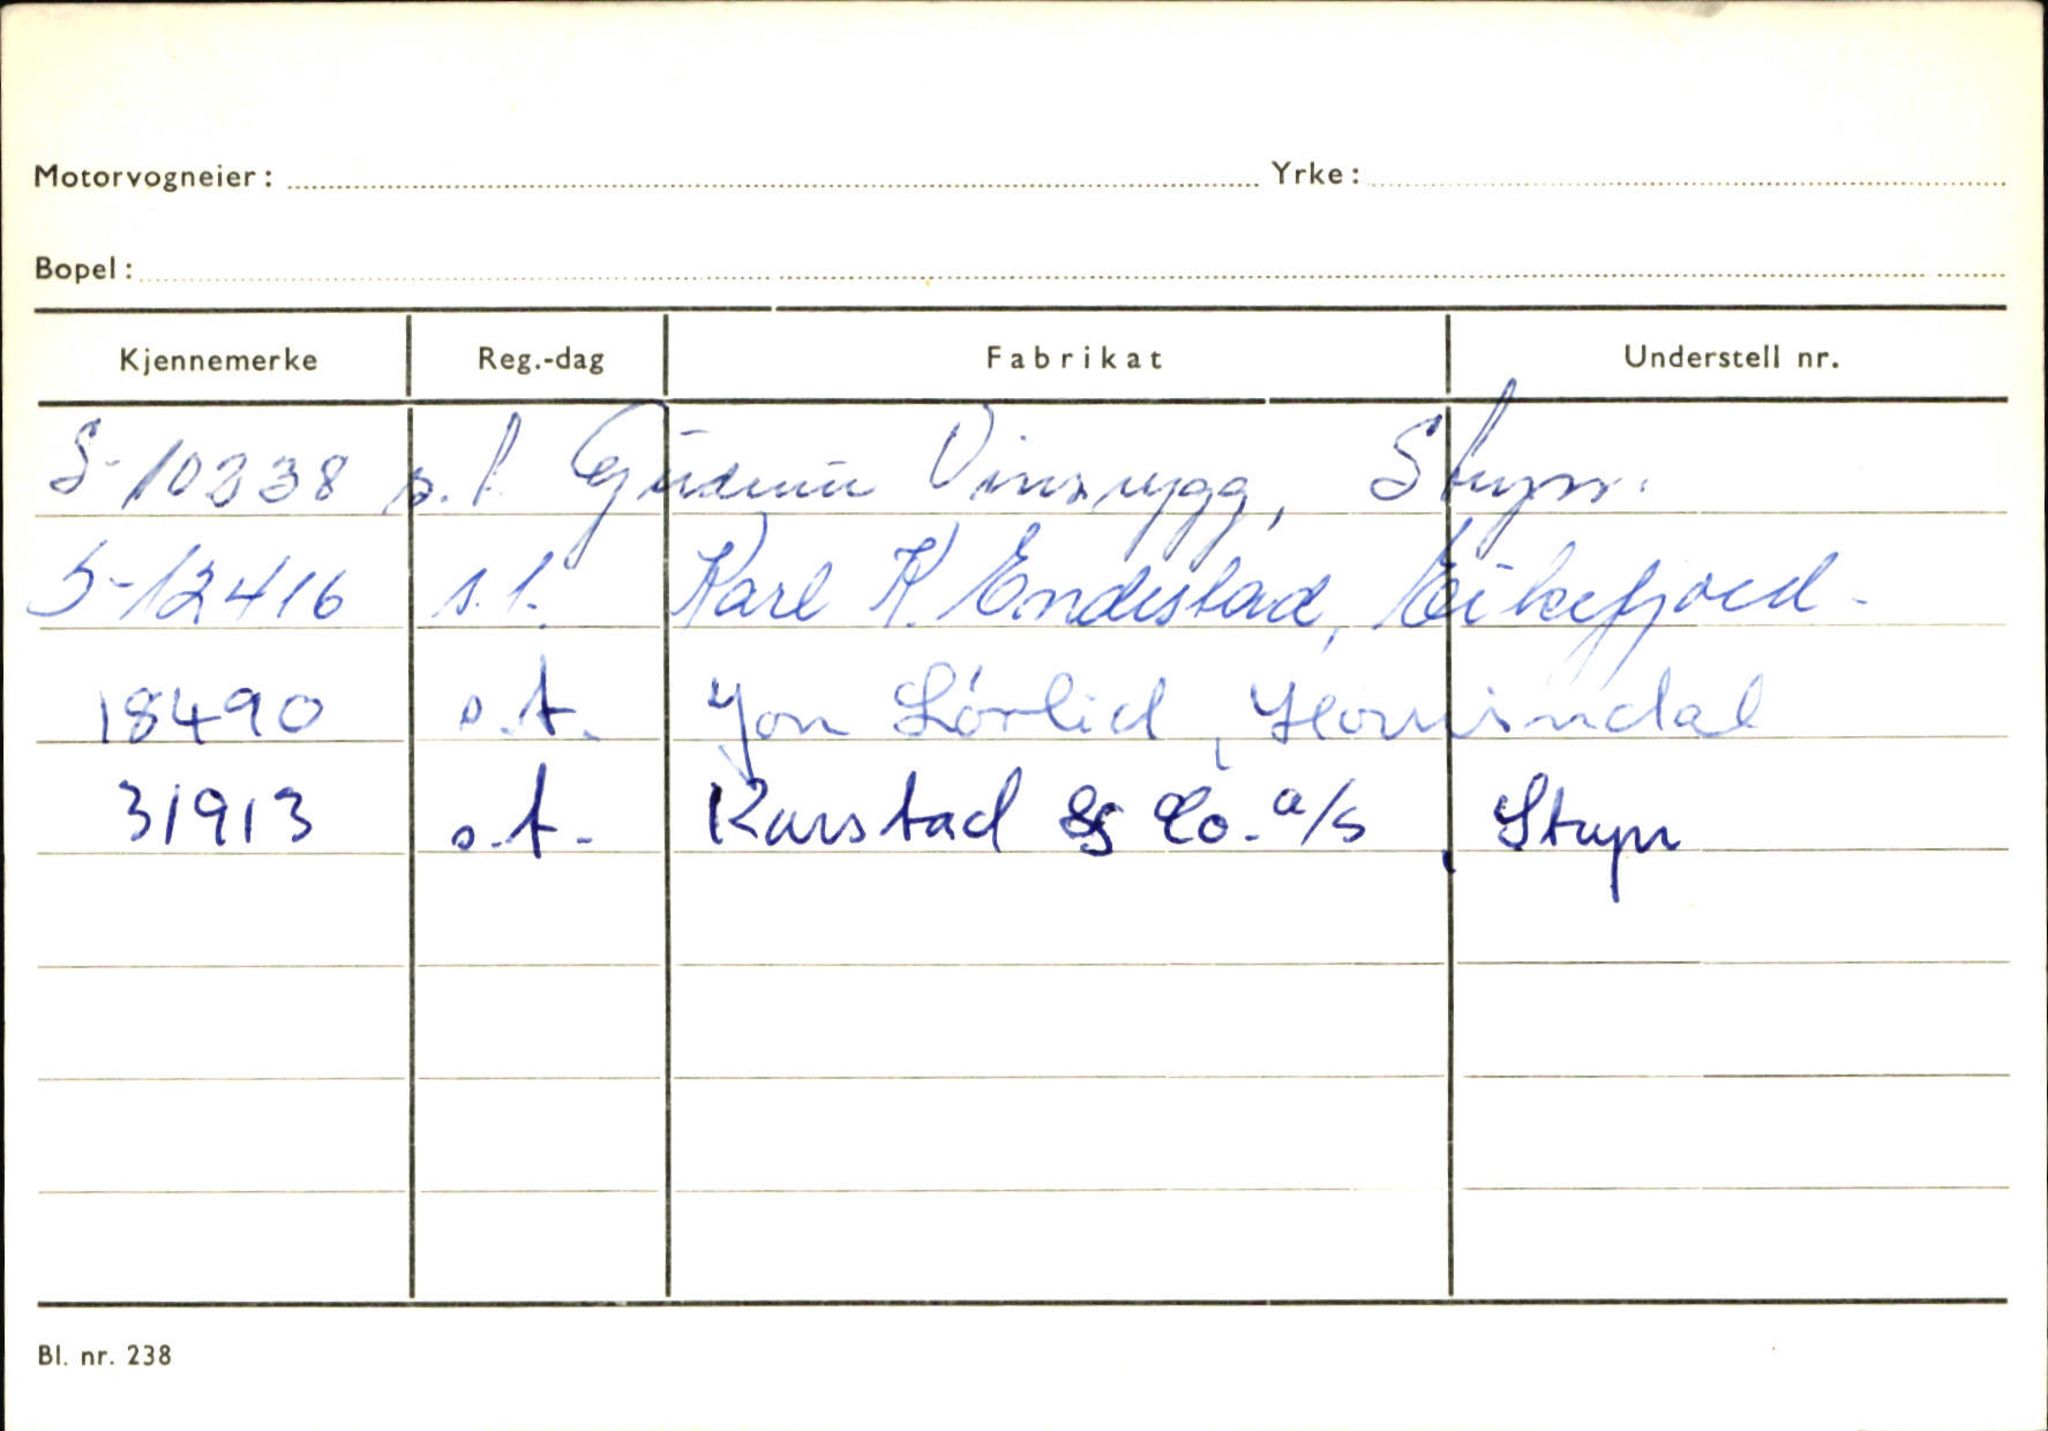 Motorvogneier: Yrke:
Bopel:
Kjennemerke Reg.-dag Fabrikat Understell nr.
S-10238 s.t. Gudrun Vinsrygg, Stryn.
S-12416 s.t. Karl K. Endestad, Eikefjord.
18490 s.t. Jon Lørlid, Hornindal
31913 s.t. Karstad & Co. a/s, Stryn
Bl. nr. 238